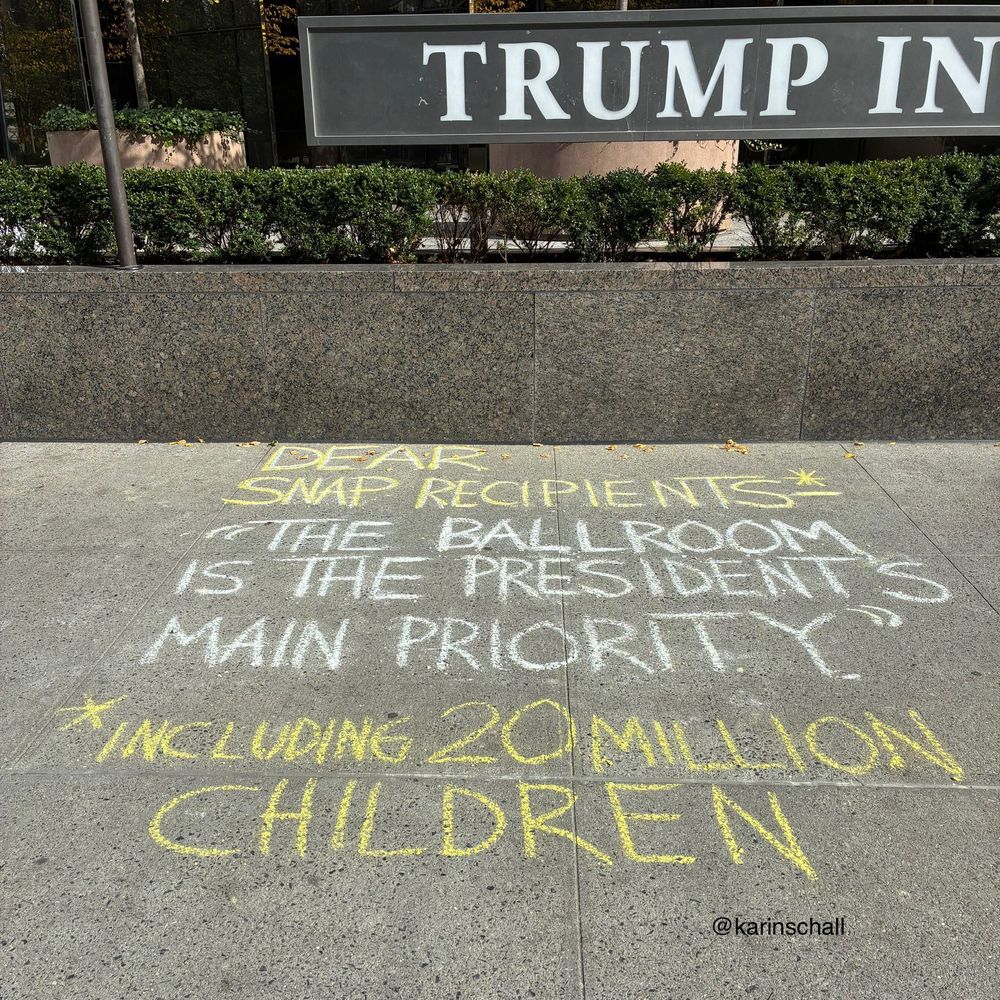 TRUMP IN
DEAR
SNAP RECIPIENTS*—
"THE BALLROOM
IS THE PRESIDENT'S
MAIN PRIORITY"
*INCLUDING 20 MILLION
CHILDREN
@karinschall